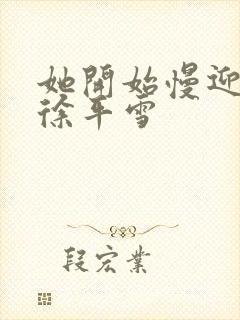 她開始慢迎
徐平雪
段宏業